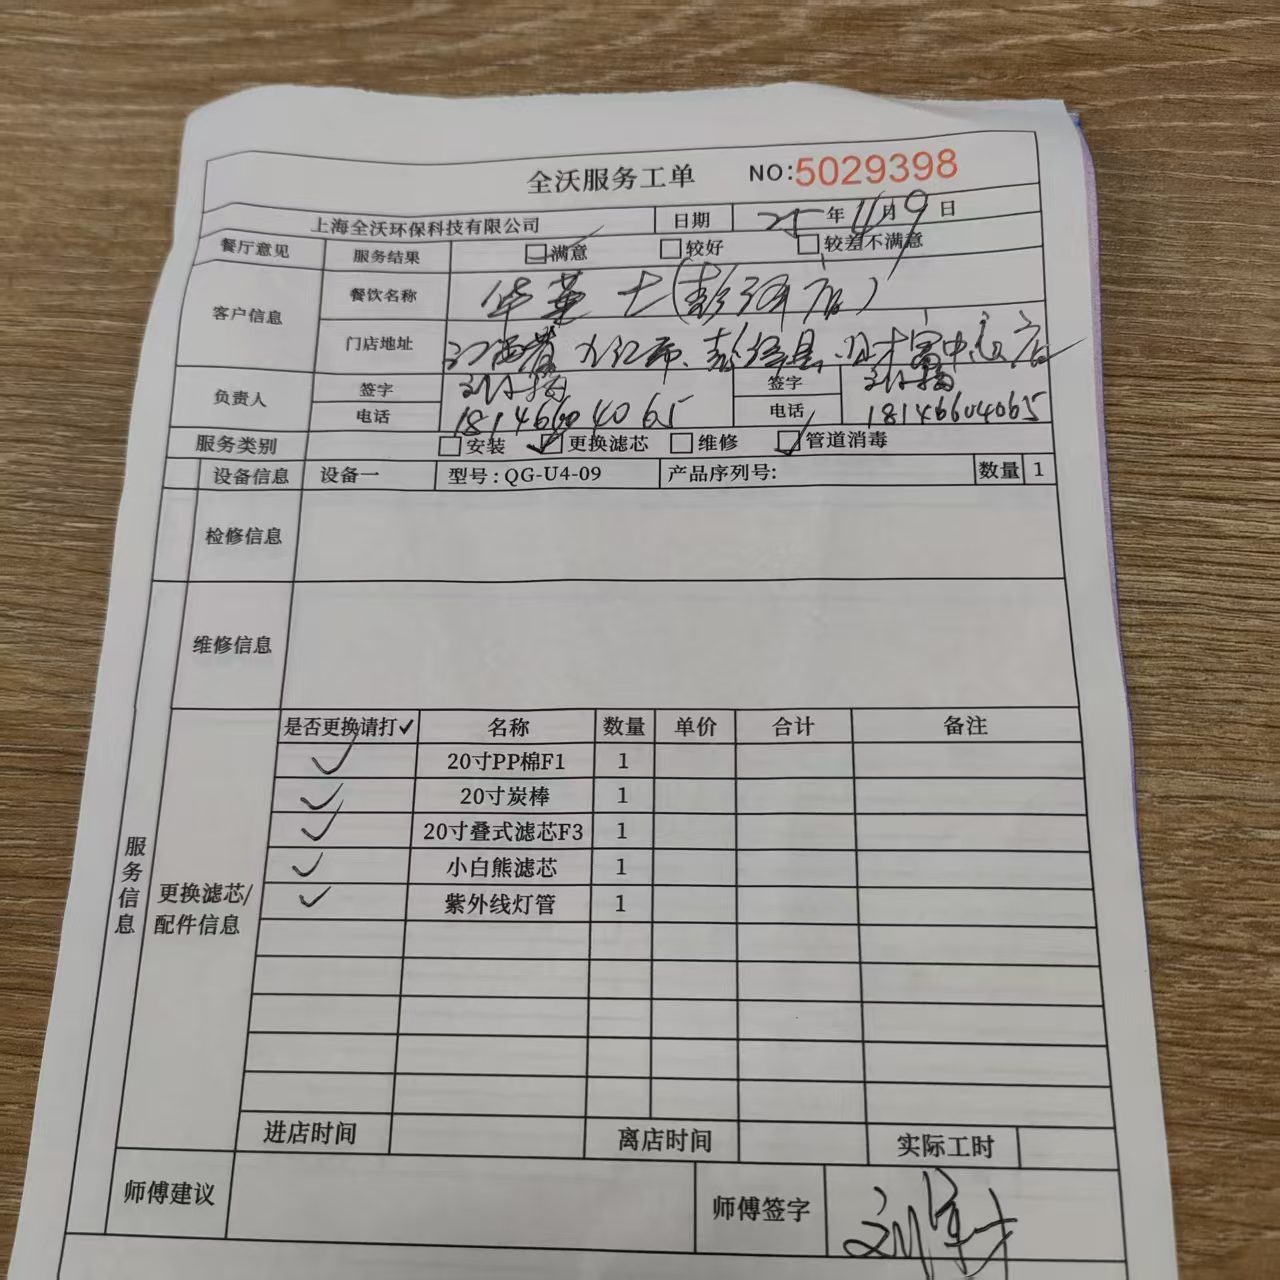 全沃服务工单 NO:5029398
上海全沃环保科技有限公司 日期 25年11月9日
餐厅意见 服务结果 满意 较好 较差不满意
客户信息 餐饮名称 华莱士(彭泽店)
门店地址 江西省九江市彭泽县财富中心店
负责人 签字 签字
电话 18146604065 电话 18146604065
服务类别 安装 ✓更换滤芯 维修 ✓管道消毒
设备信息 设备一 型号:QG-U4-09 产品序列号: 数量 1
检修信息
维修信息
服务信息
更换滤芯/
配件信息
是否更换请打✓ 名称 数量 单价 合计 备注
✓ 20寸PP棉F1 1
✓ 20寸炭棒 1
✓ 20寸叠式滤芯F3 1
✓ 小白熊滤芯 1
✓ 紫外线灯管 1
进店时间 离店时间 实际工时
师傅建议 师傅签字